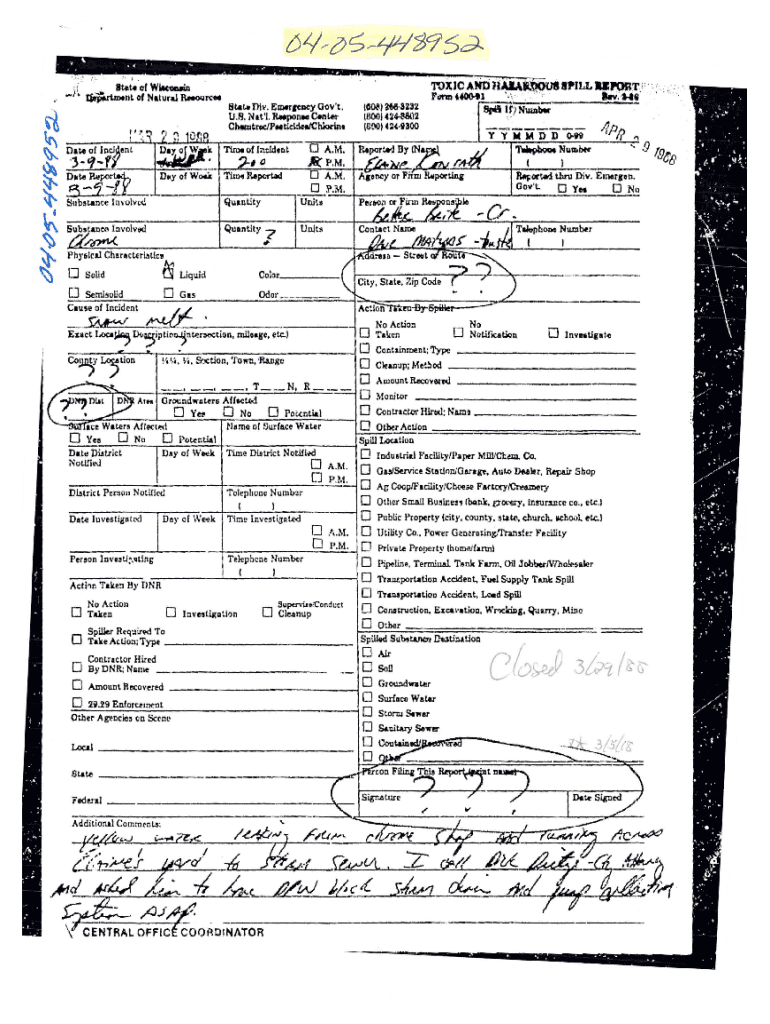 04-05-448952
State of Wisconsin
Department of Natural Resources
TOXIC AND HAZARDOUS SPILL REPORT
Form 4400-91 Rev. 3-86
State Div. Emergency Gov't. (608) 266-3232
U.S. Nat'l. Response Center (800) 424-8802
Chemtrec/Pesticides/Chlorine (800) 424-9300
Spill ID Number
Y Y M M D D 0-99
MAR 29 1988
APR 29 1988
04-05-448952
Date of Incident Day of Week Time of Incident A.M. P.M.
3-9-88 200
Reported By (Name) Telephone Number
Elaine ( )
Date Reported Day of Week Time Reported A.M. P.M.
3-9-88
Agency or Firm Reporting Reported thru Div. Emergen. Gov't. Yes No
Substance Involved Quantity Units
Person or Firm Responsible
Better Brite - Co.
Substance Involved Quantity Units
Chrome ?
Contact Name Telephone Number
( )
Physical Characteristics
Solid Liquid Color
Semisolid Gas Odor
Address - Street or Route
? ?
City, State, Zip Code
?
Cause of Incident
Snow melt.
Exact Location Description (intersection, mileage, etc.)
? ?
County Location ¼¼, ¼, Section, Town, Range
? ?
T N, R
DNR Dist DNR Area Groundwaters Affected
Yes No Potential
Surface Waters Affected Name of Surface Water
Yes No Potential
Date District Notified Day of Week Time District Notified A.M. P.M.
District Person Notified Telephone Number
( )
Date Investigated Day of Week Time Investigated A.M. P.M.
Person Investigating Telephone Number
( )
Action Taken By DNR
No Action Taken Investigation Supervise/Conduct Cleanup
Spiller Required To Take Action; Type
Contractor Hired By DNR; Name
Amount Recovered
29.29 Enforcement
Other Agencies on Scene
Local
State
Federal
Action Taken By Spiller
No Action Taken No Notification Investigate
Containment; Type
Cleanup; Method
Amount Recovered
Monitor
Contractor Hired; Name
Other Action
Spill Location
Industrial Facility/Paper Mill/Chem. Co.
Gas/Service Station/Garage, Auto Dealer, Repair Shop
Ag Coop/Facility/Cheese Factory/Creamery
Other Small Business (bank, grocery, insurance co., etc.)
Public Property (city, county, state, church, school, etc.)
Utility Co., Power Generating/Transfer Facility
Private Property (home/farm)
Pipeline, Terminal, Tank Farm, Oil Jobber/Wholesaler
Transportation Accident, Fuel Supply Tank Spill
Transportation Accident, Load Spill
Construction, Excavation, Wrecking, Quarry, Mine
Other
Spilled Substance Destination
Air
Soil
Groundwater
Surface Water
Storm Sewer
Sanitary Sewer
Contained/Recovered
Other
Closed 3/29/88
Person Filing This Report (print name)
? ? ?
Signature Date Signed
Additional Comments:
yellow water leaking from chrome shop and running across
Elaine's yard to storm sewer. I call
and asked him to have DPW block storm drain and pump collection
System ASAP.
CENTRAL OFFICE COORDINATOR